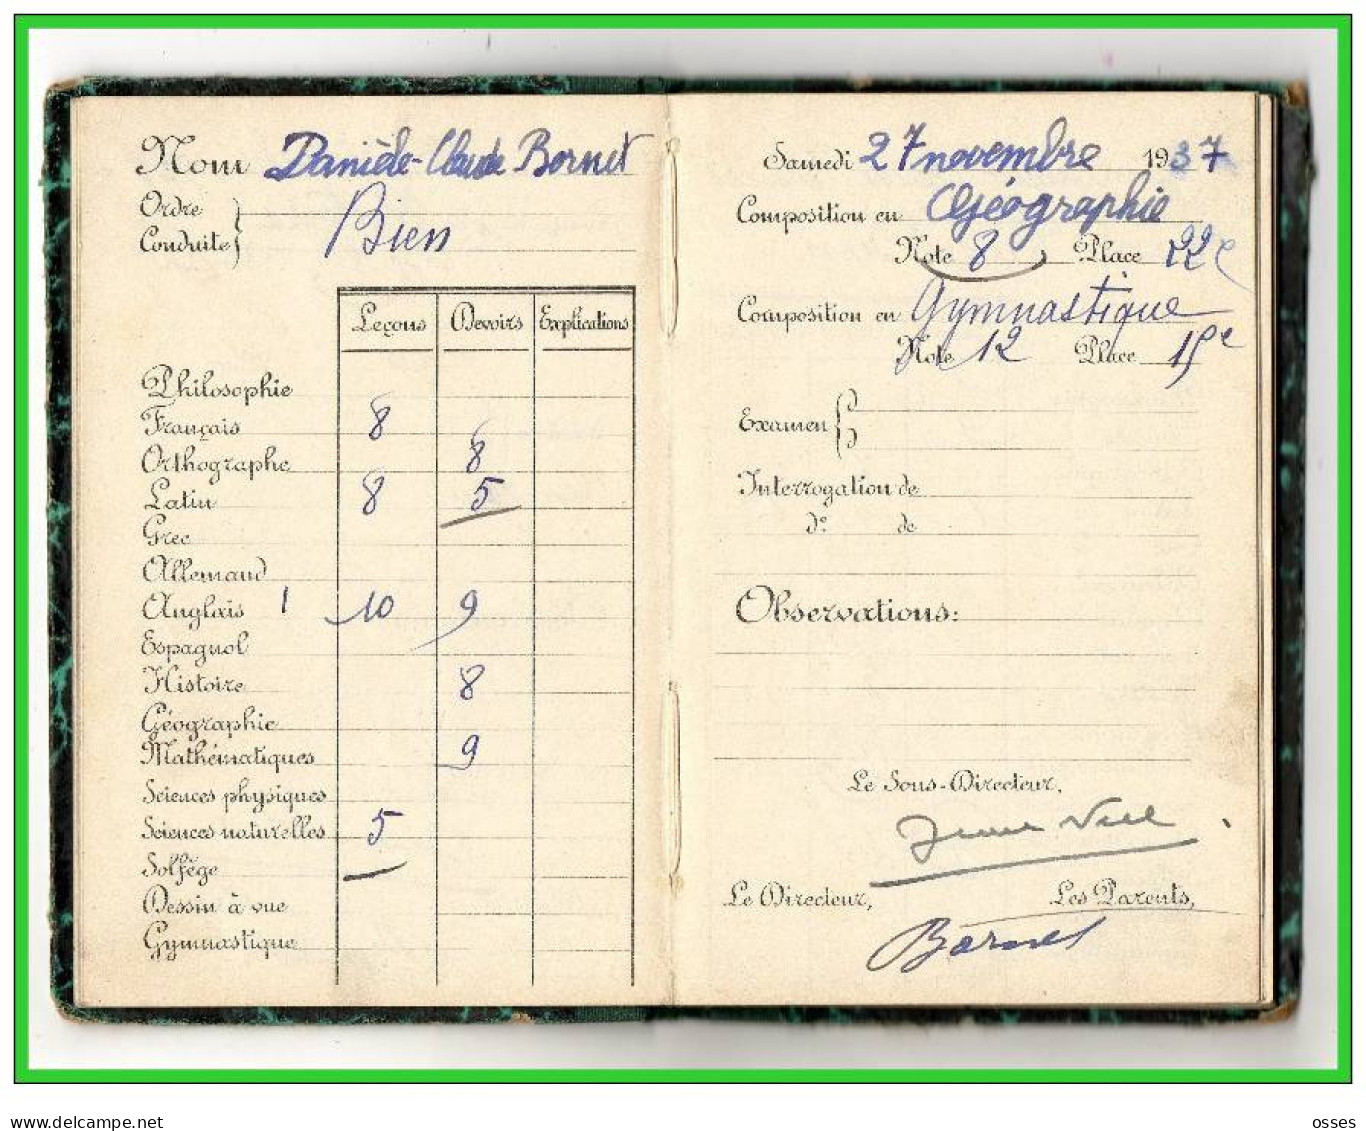 Nom Danièle-Claude Bornet
Ordre
Conduite
Bien
Leçons Devoirs Explications
Philosophie
Français 8
Orthographe 8
Latin 8 5
Grec
Allemand
Anglais 1 10 9
Espagnol
Histoire 8
Géographie
Mathématiques 9
Sciences physiques
Sciences naturelles 5
Solfège
Dessin à vue
Gymnastique
Samedi 27 novembre 1937
Composition en Géographie
Note 8 Place 22e
Composition en Gymnastique
Note 12 Place 15e
Examen
Interrogation de
do de
Observations:
Le Sous-Directeur,
Le Directeur, Les Parents,
Bornet
www.delcampe.net osses